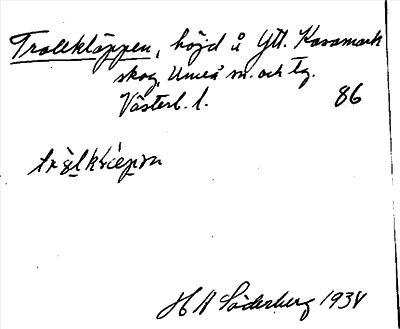 Trollkläppen, höjd å Ytt. Kasamark
skog, Umeå sn. och tg.
Västerb. l. 86
H A Söderberg 1934